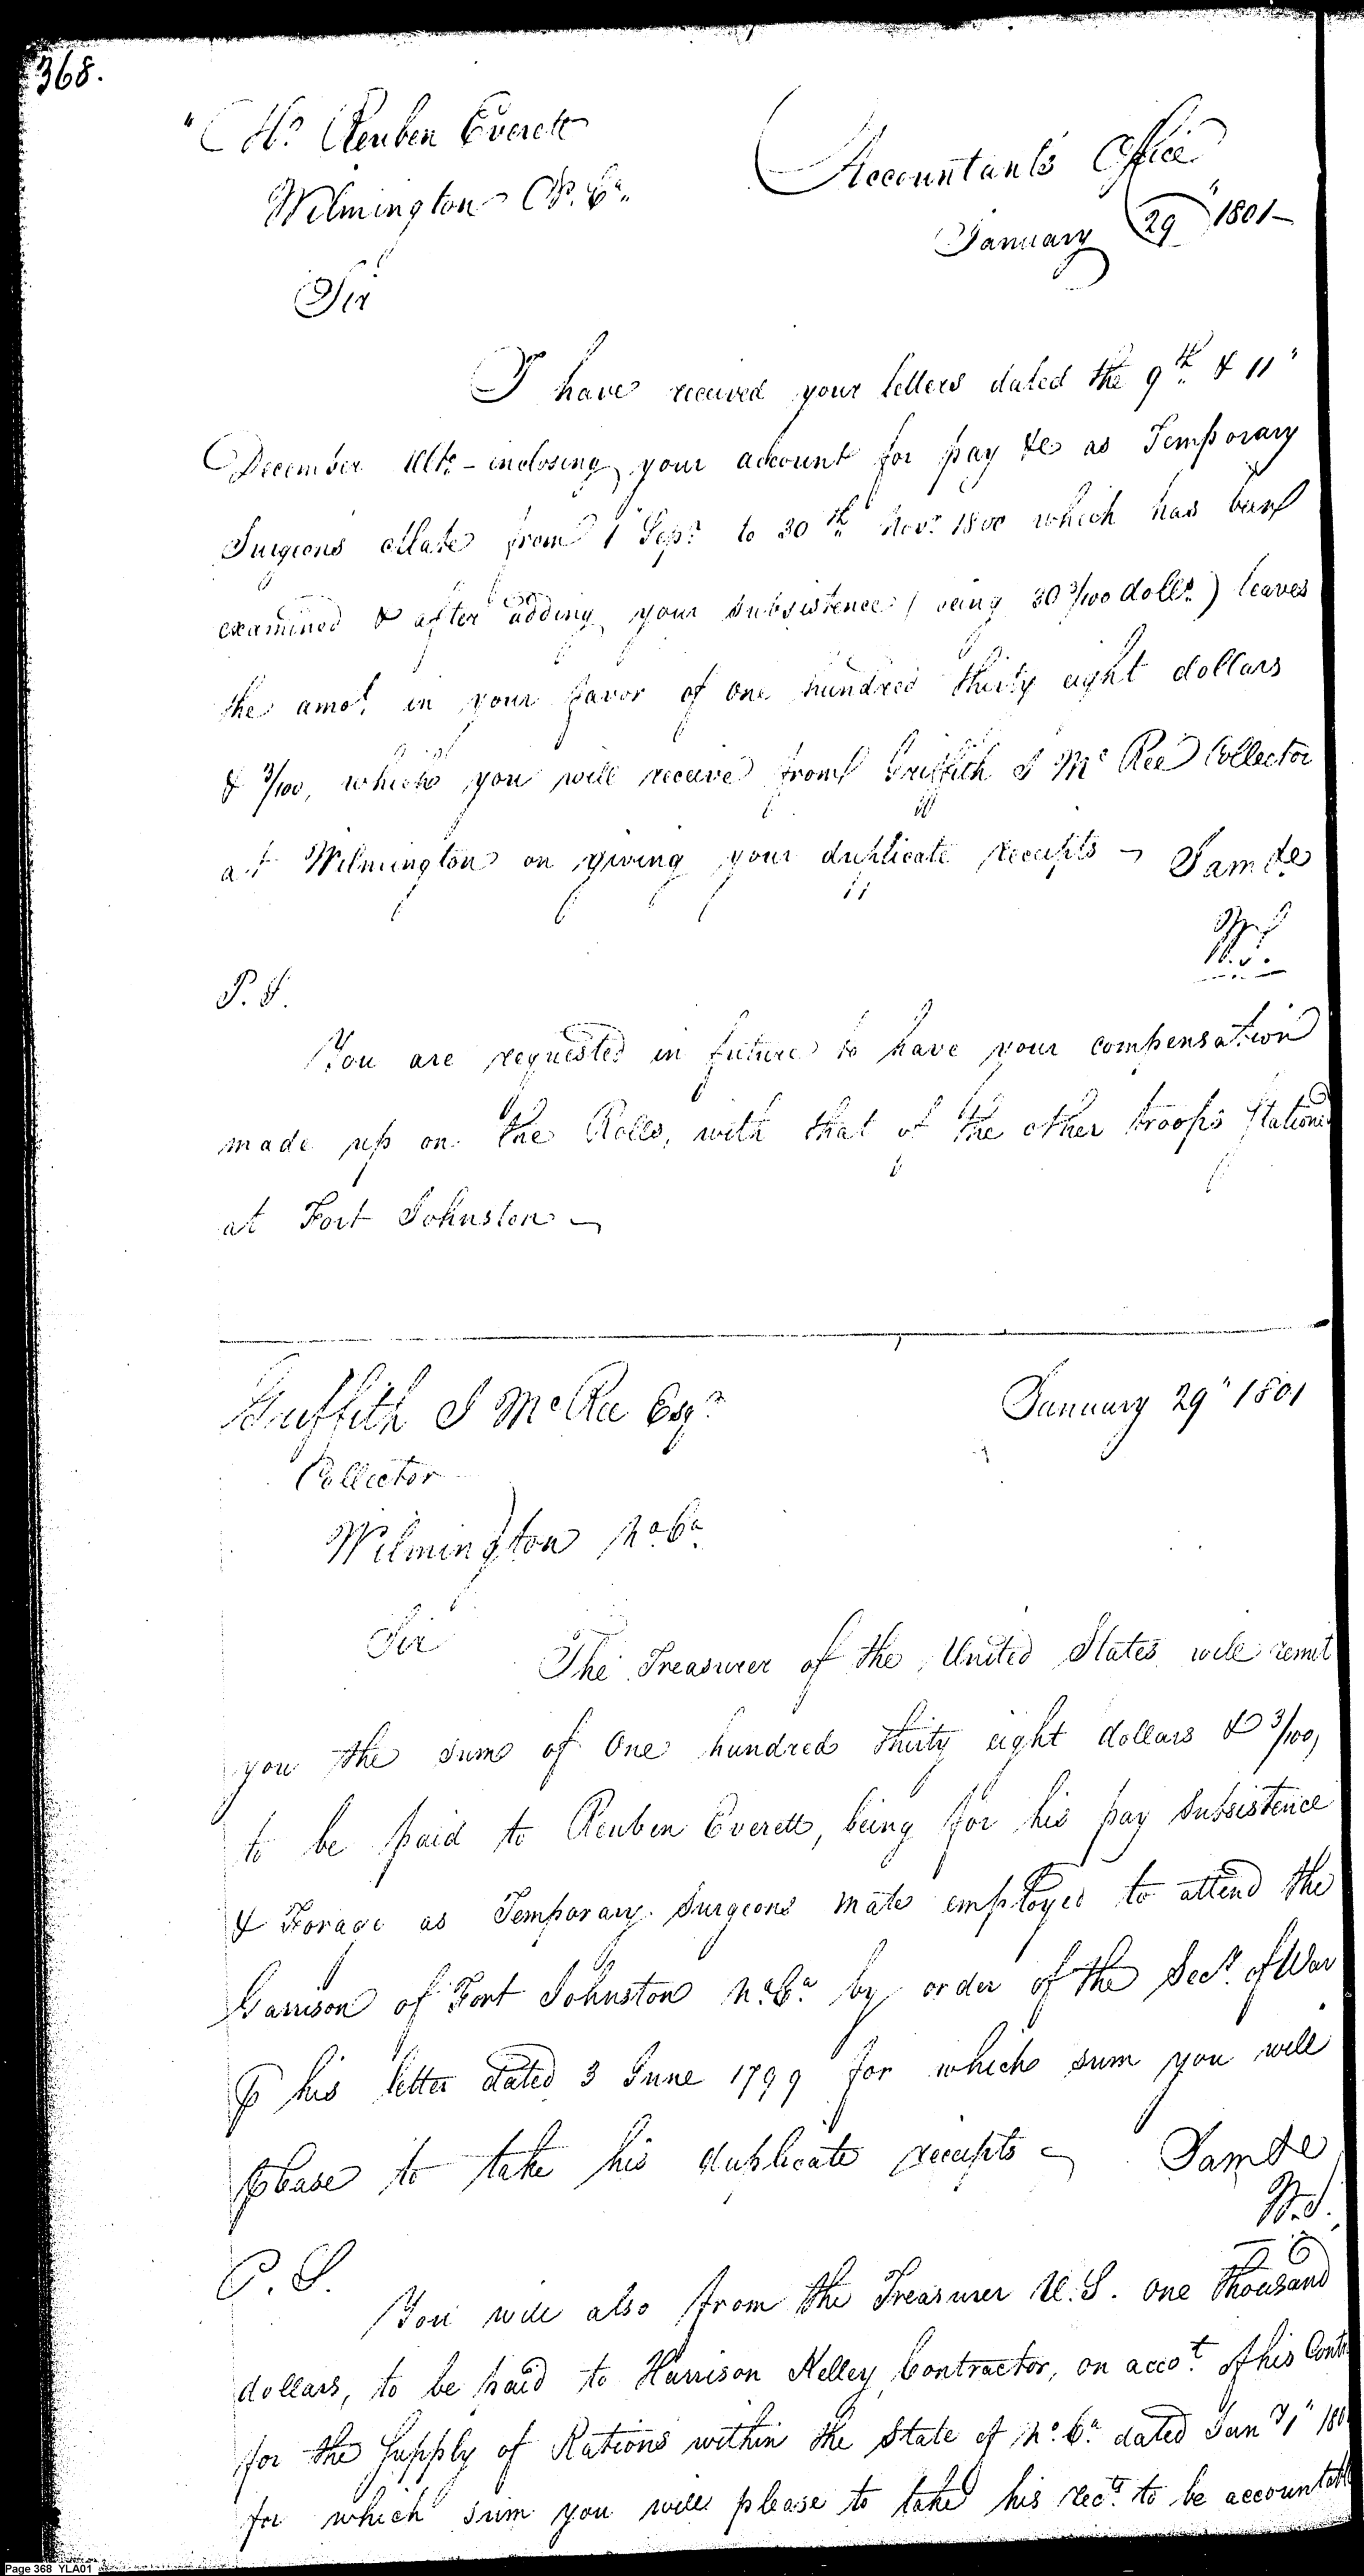 368.
Mr. Reuben Everett
Wilmington No. Ca.
Accountants Office
January 29" 1801 —
Sir
I have received your letters dated the 9th. & 11"
December Ulto. - inclosing your account for pay &c as Temporary
Surgeons Mate from 1" Sepr. to 30th. Novr. 1800 which has been
examined & after adding your subsistence (being 30 3/100 dolls.) leaves
the amot. in your favor of one hundred thirty eight dollars
& 3/100, which you will receive from Griffith J McRee Collector
at Wilmington on giving your duplicate receipts — I am &c
W.S.
P.S.
You are requested in future to have your compensation
made up on the Rolls, with that of the other troops stationed
at Fort Johnston —
Griffith J McRee Esqr.
January 29" 1801
Collector
Wilmington No. Ca.
Sir
The Treasurer of the United States will remit
you the sum of One hundred thirty eight dollars & 3/100,
to be paid to Reuben Everett, being for his pay subsistence
& Forage as Temporary Surgeons mate employed to attend the
Garrison of Fort Johnston No. Ca. by order of the Secy. of War
⅌ his letter dated 3 June 1799 for which sum you will
please to take his duplicate receipts — I am &c
W.S.
P.S.
You will also from the Treasurer U.S. one thousand
dollars, to be paid to Harrison Kelley Contractor, on accot. of his Cont
for the Supply of Rations within the State of No. Ca. dated Jany 1" 180
for which sum you will please to take his rects. to be accountable
Page 368 YLA01